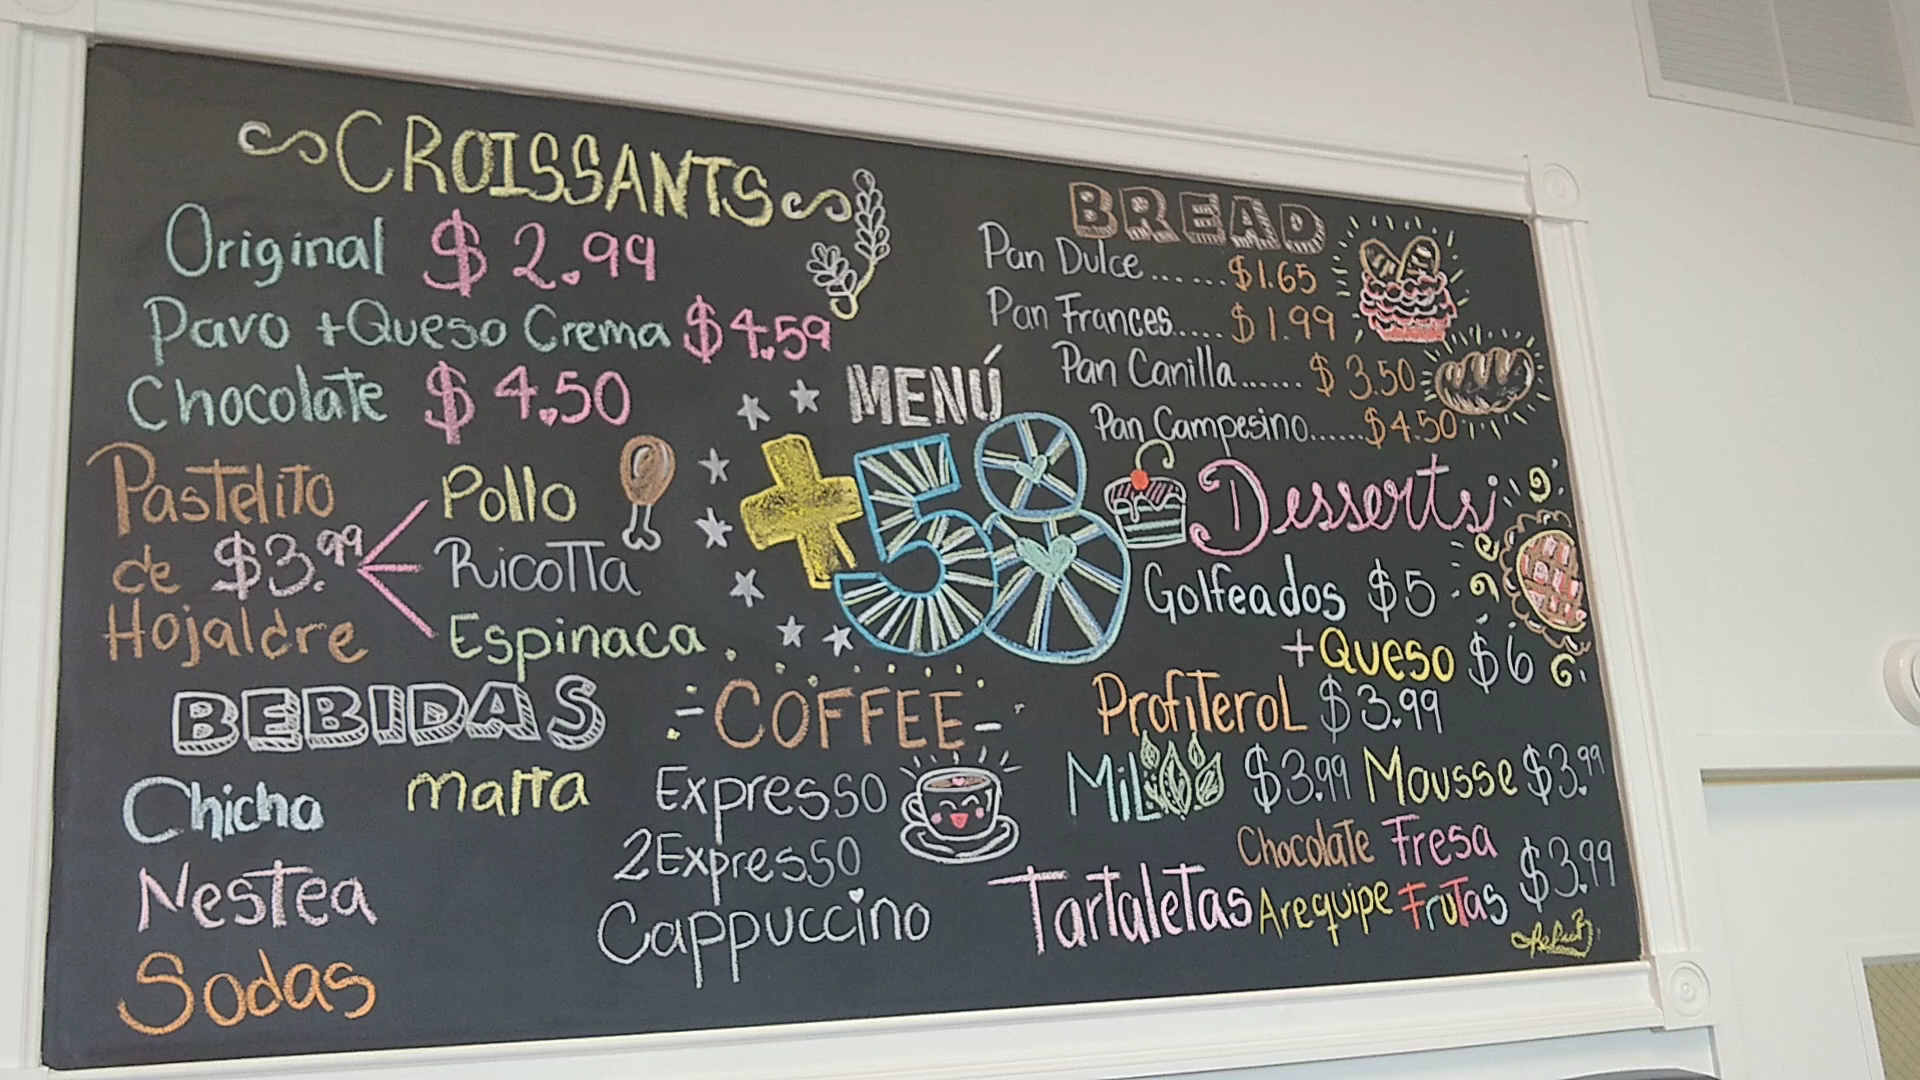 CROISSANTS
Original $2.99
Pavo +Queso Crema $4.59
Chocolate $4.50
Pastelito
de $3.99
Hojaldre
Pollo
Ricotta
Espinaca
MENÚ
+58
BREAD
Pan Dulce......$1.65
Pan Frances....$1.99
Pan Canilla......$3.50
Pan Campesino......$4.50
Desserts
Golfeados $5
+Queso $6
Profiterol $3.99
Mil $3.99 Mousse $3.99
Chocolate Fresa
Tartaletas Arequipe Frutas $3.99
BEBIDAS
Chicha malta
Nestea
Sodas
-COFFEE-
Expresso
2Expresso
Cappuccino